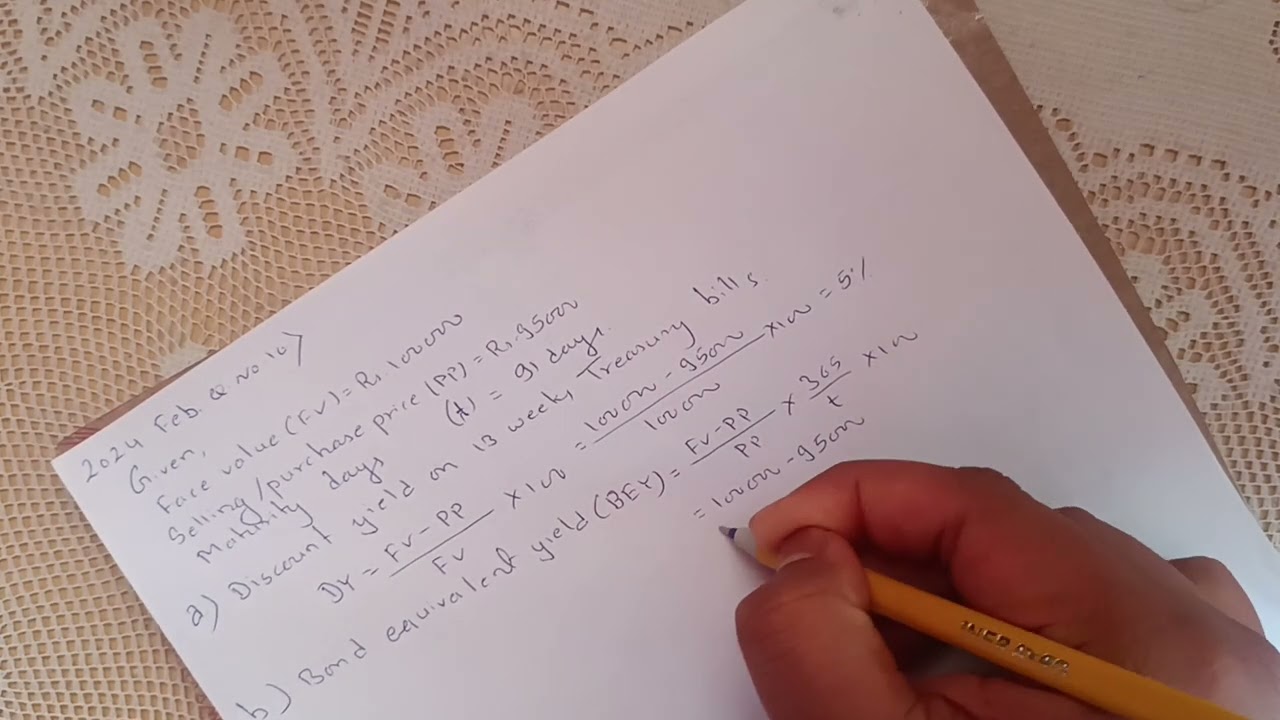 2024 Feb. Q No 10>
Given,
Face value (FV) = Rs. 100000
Selling/purchase price (PP) = Rs. 95000
Maturity days (t) = 91 days.
a) Discount yield on 13 weeks Treasury bills.
DY = FV-PP/FV X100 = 100000-95000/100000 X100 = 5%
b) Bond equivalent yield (BEY) = FV-PP/PP X 365/t X100
= 100000-95000